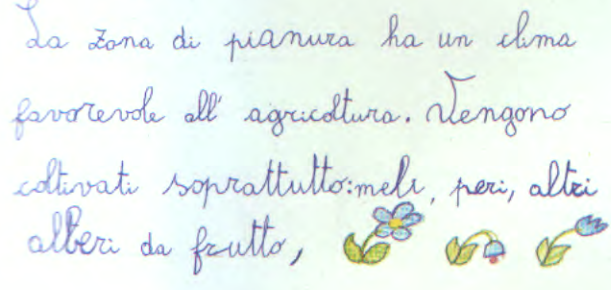 La zona di pianura ha un clima
favorevole all' agricoltura. Vengono
coltivati soprattutto: meli, peri, altri
alberi da frutto,